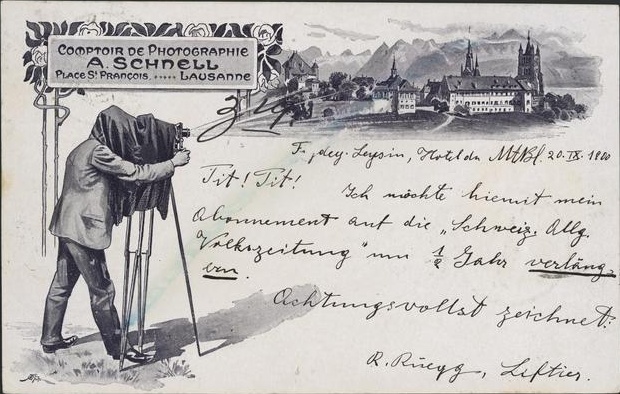 COMPTOIR DE PHOTOGRAPHIE
A. SCHNELL
PLACE St FRANÇOIS ..... LAUSANNE
Feydey-Leysin, Hotel du Mt Bl. 20.IX.1900
Tit! Tit!
Ich möchte hiemit mein
Abonnement auf die „Schweiz. Allg.
Volkszeitung" um 1/2 Jahr verläng-
ern.
Achtungsvollst zeichnet:
R. Rüegg, Liftier.